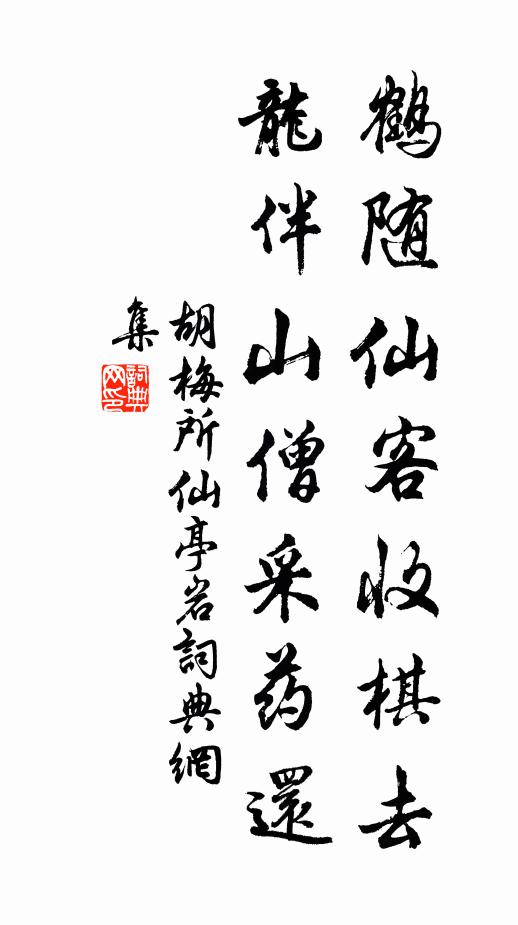 鶴随仙客收棋去
龍伴山僧采药還
胡梅所仙亭岩詞典網
集
詞典网印